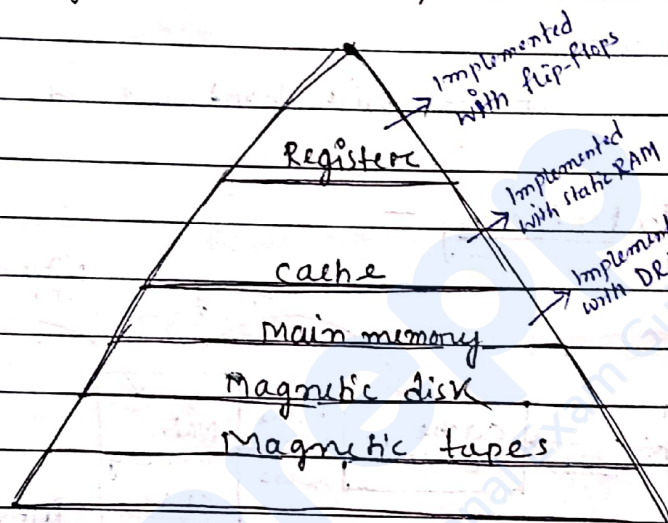 Implemented
with flip-flops
Register
Implemented
with static RAM
cache
Implement
with DR
Main memory
Magnetic disk
Magnetic tapes